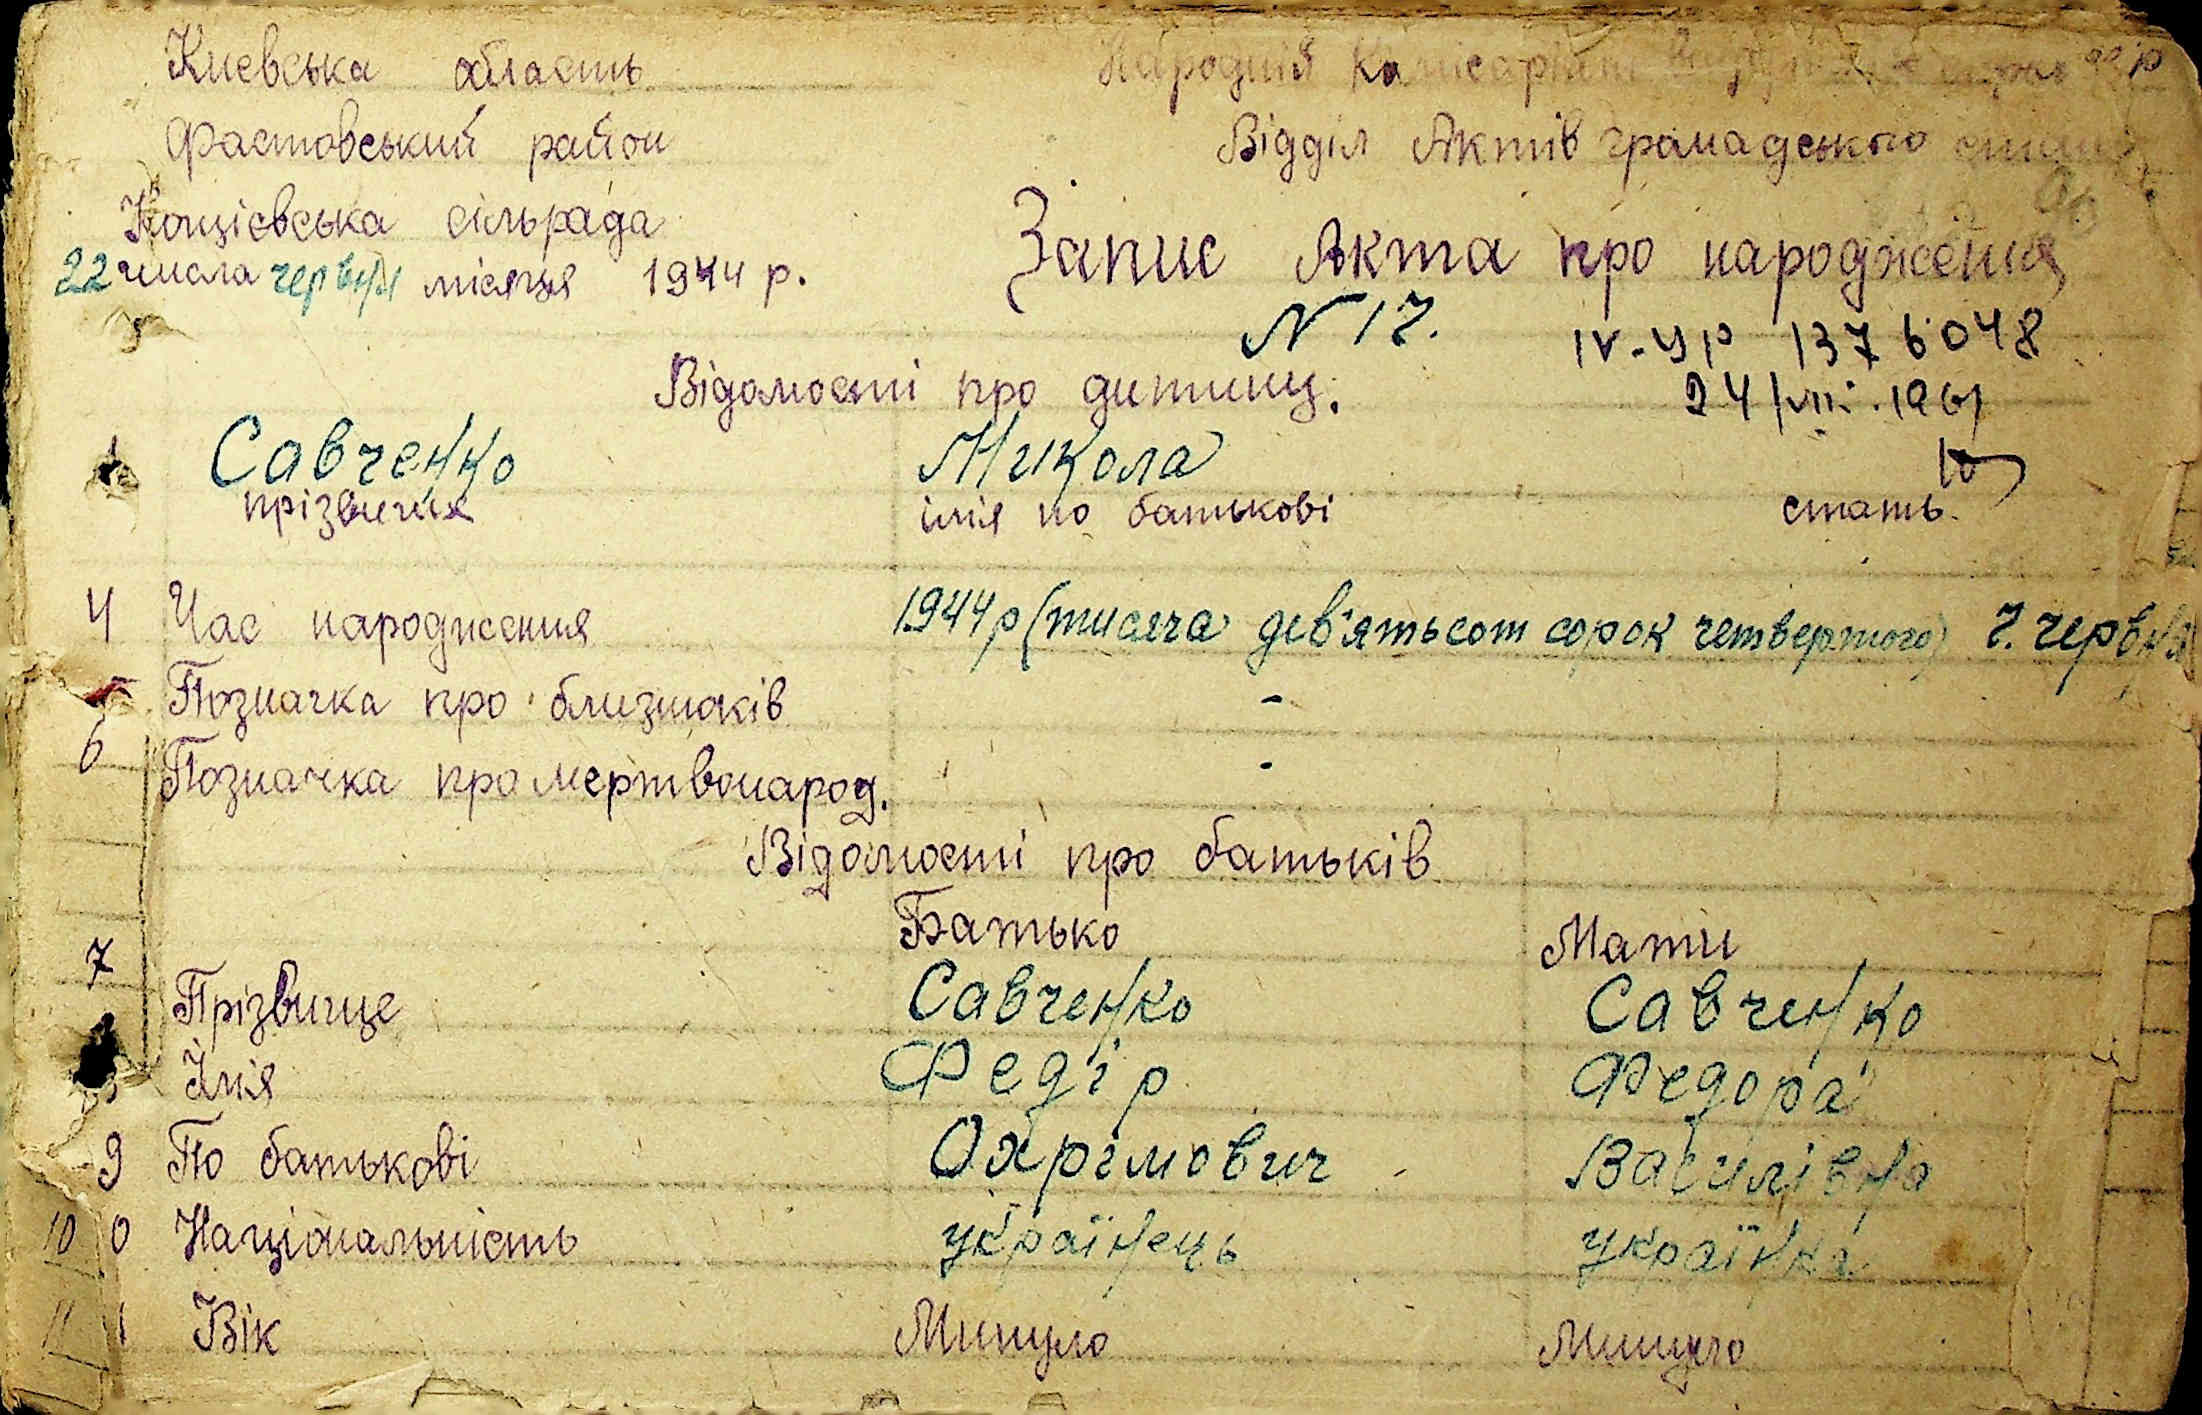 Киевська область
Народній Комісаріят
Фастовський район
Відділ Актів громадського
сільрада
22 числа червня місяця 1944 р.
Запис Акта про народження
N 17.
IV-УР 1376048
24/VIII.1961
Відомості про дитину.
Савченко Микола
прізвище імя по батькові стать.
4 Час народження 1944 р (тисяча дев'ятьсот сорок четвертого) 7. червня
5 Позначка про близнюків -
6 Позначка про мертвонарод. -
Відомості про батьків
Батько Мати
7 Прізвище Савченко Савченко
Імя Федір Федора
9 По батькові Охрімович Василівна
10 0 Національність українець українка
11 1 Вік Минуло Минуло